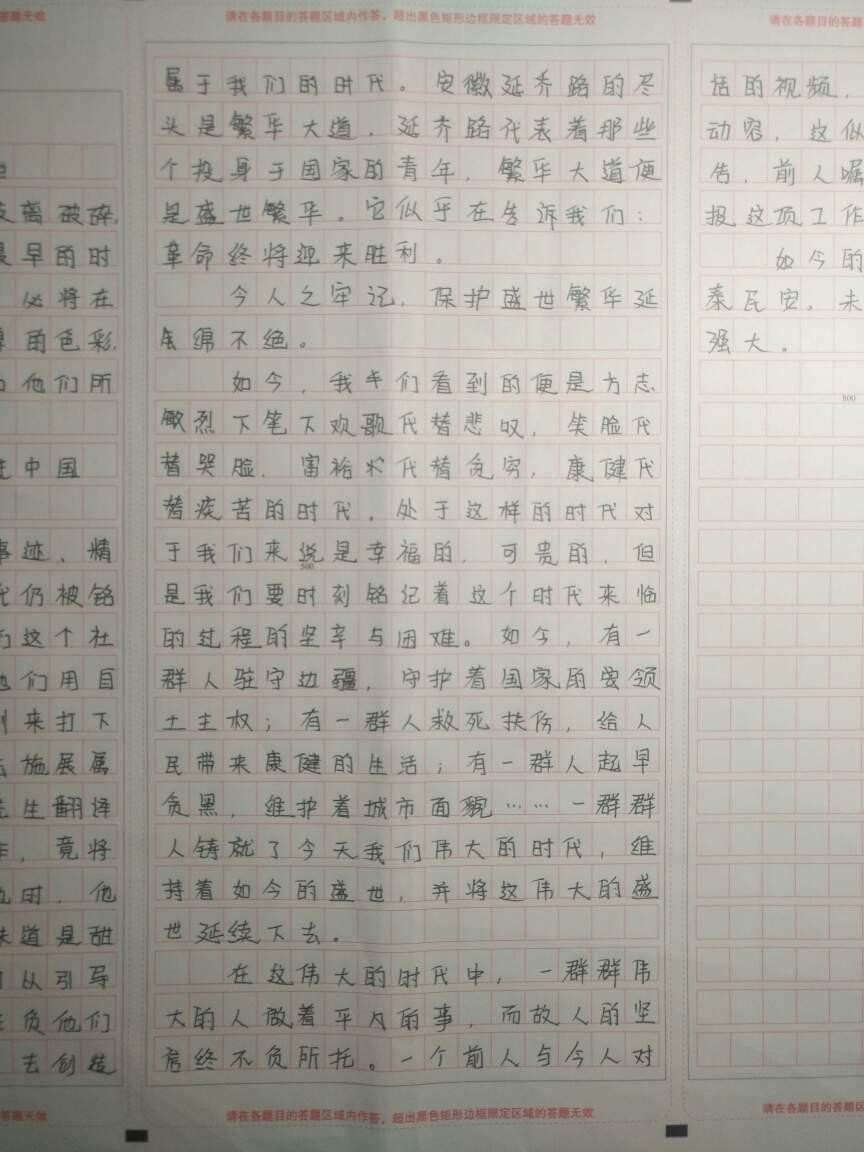 答题无效
支离破碎,
最早的时
必将在
的色彩.
他们所
中国
事迹、精
代仍被铭
这个社
他们用自
来打下
施展属
先生翻译
竟将
时.他
味道是甜
从引导
负他们
去创造
答题无效
请在各题目的答题区域内作答，超出黑色矩形边框限定区域的答题无效
属于我们的时代。安徽延乔路的尽
头是繁华大道.延乔路代表着那些
个投身于国家的青年.繁华大道便
是盛世繁华。它似乎在告诉我们:
革命终将迎来胜利。
今人之牢记,保护盛世繁华延
绵不绝。
如今,我们看到的便是方志
敏烈下笔下欢歌代替悲叹,笑脸代
替哭脸.富裕代替贪穷,康健代
替疾苦的时代.处于这样的时代对
于我们来说是幸福的.可贵的.但
500
是我们要时刻铭记着这个时代来临
的过程的坚辛与困难。如今,有一
群人驻守边疆,守护着国家的安领
土主权;有一群人救死扶伤,给人
民带来康健的生活;有一群人起早
贪黑,维护着城市面貌……一群群
人铸就了今天我们伟大的时代,维
持着如今的盛世,并将这伟大的盛
世延续下去。
在这伟大的时代中,一群群伟
大的人做着平凡的事,而故人的坚
终不负所托。一个前人与今人对
请在各题目的答题区域内作答，超出黑色矩形边框限定区域的答题无效
请在各题目的答题区
话的视频,
动容,这似
告,前人嘱
报这项工作
如今的
泰民安.未
强大。
800
请在各题目的答题区